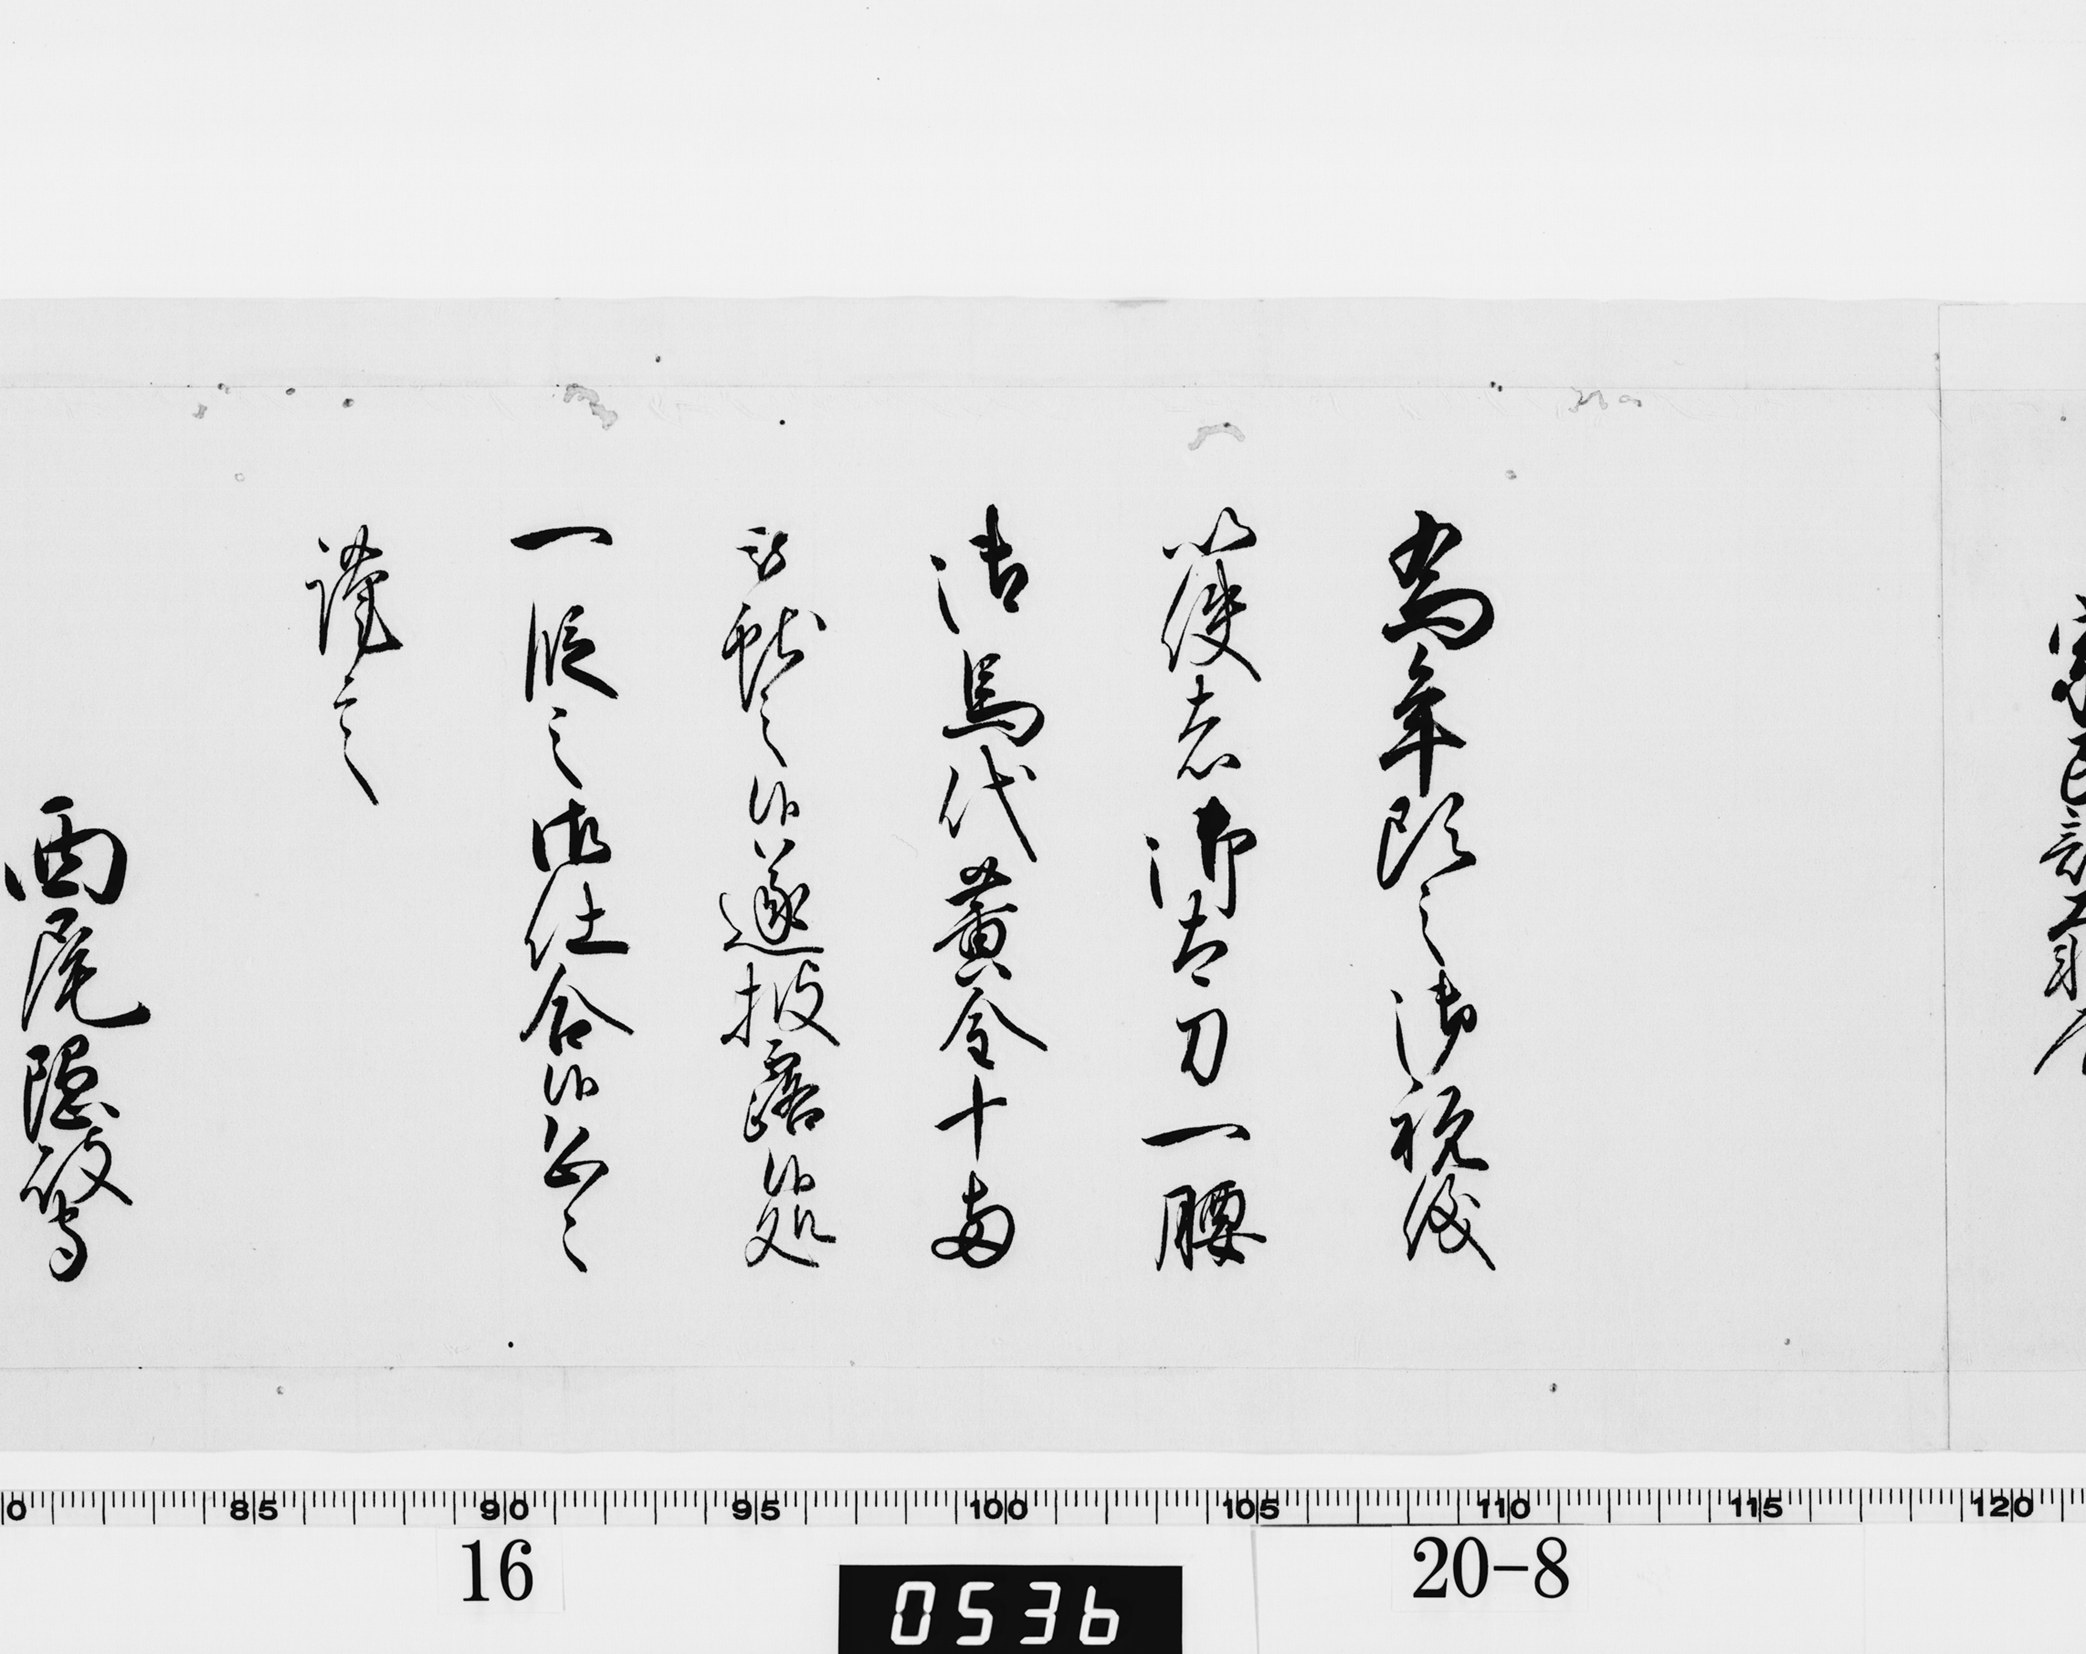 為年頭之御祝儀
以使者御太刀一腰
御馬代黄金十両
被献之候遂披露候処
一段之御仕合候恐々
謹言
西尾隠岐守
0 85 90 95 100 105 110 115 120
16
20-8
0536